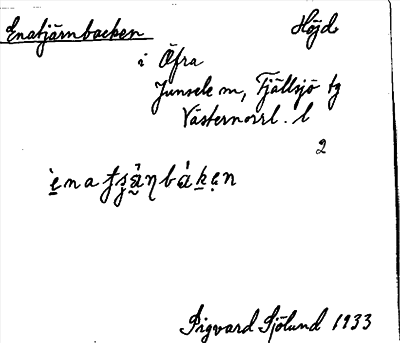 Enatjärnbacken Höjd
i Öfra
Junsele sn, Fjällsjö tg
Västernorrl. l
2
Sigvard Sjölund 1933